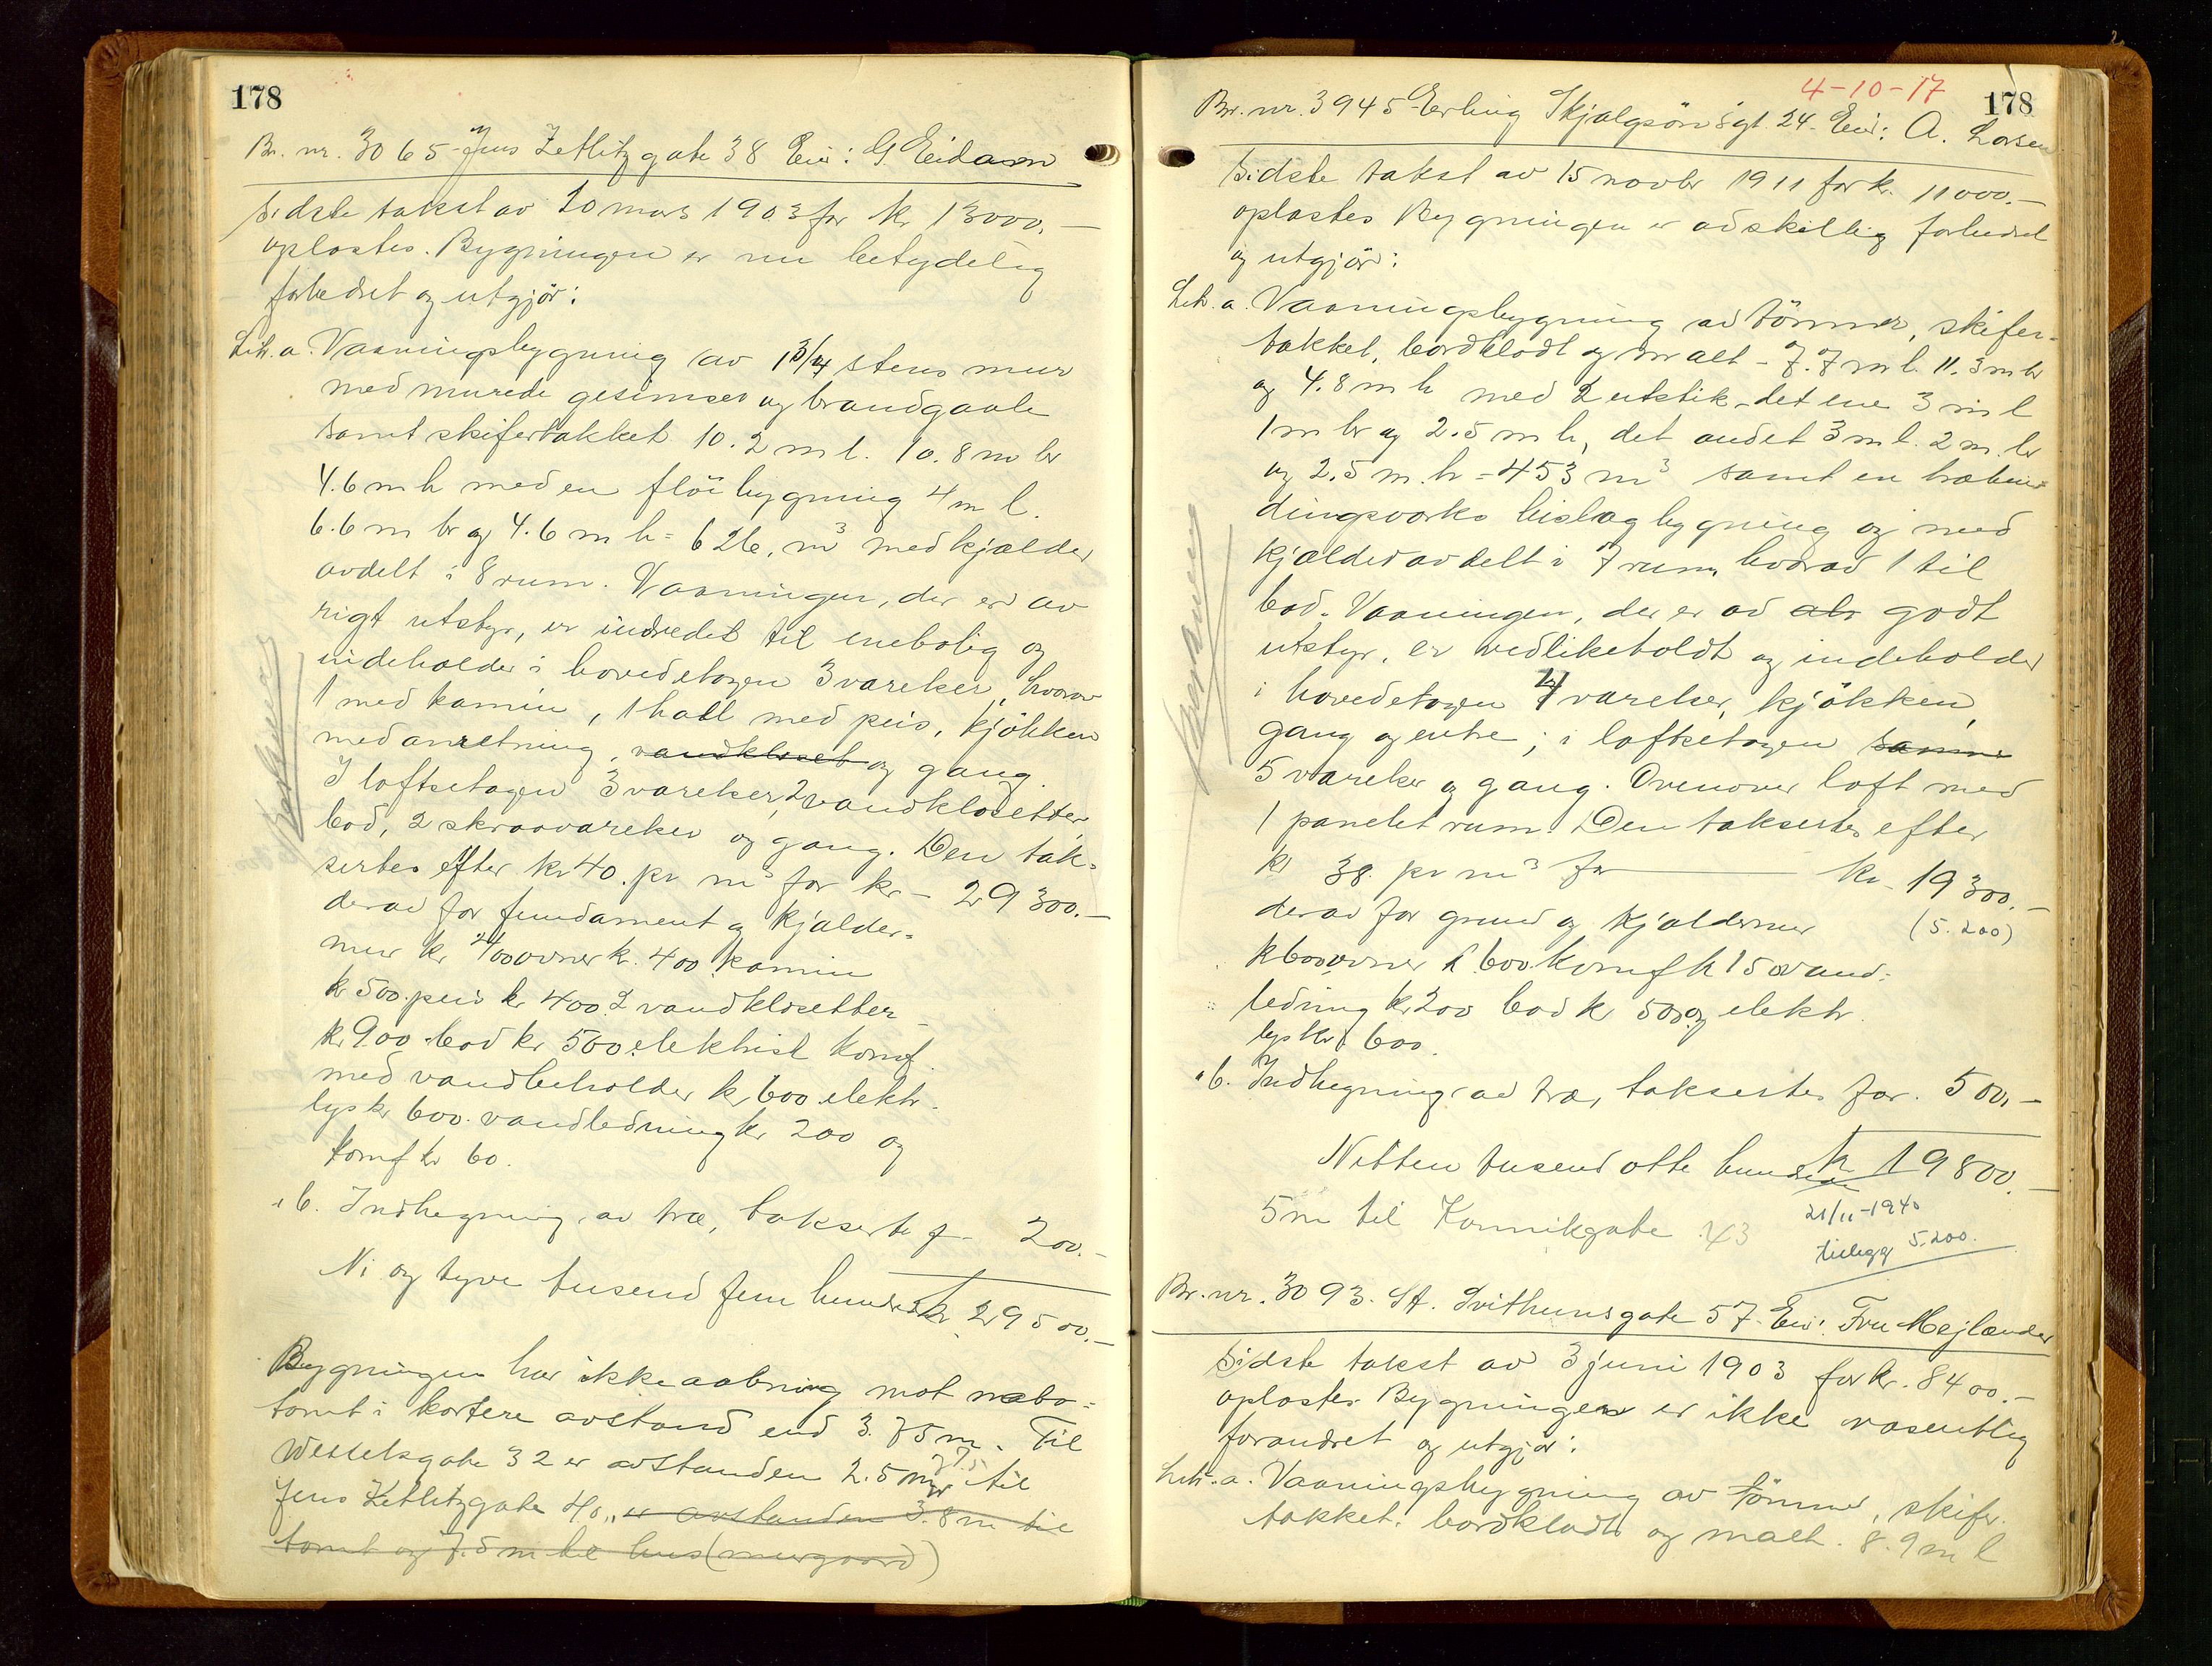 178
Br. nr. 3065 Jens Zetlitzgate 38 Eier: G. Eidamm
Sidste takst av 20 mars 1903 for kr 13000.—
oplæstes. Bygningen er nu betydelig
forbedret og utgjør:
Litr. a. Vaaningsbygning av 1 3/4 stens mur
med murede gesimser og brandgavle
samt skifertækket 10.2 m l. 10.8 m br
4.6 m h med en fløibygning 4 m l.
6.6 m br og 4.6 m h = 626. m³ med kjælder
avdelt i 8 rum. Vaaningen, der er av
rigt utstyr, er indredet til enebolig og
indeholder i hovedetagen 3 værelser, hvorav
1 med kamin, 1 hall med peis, kjøkken
med anretning, vandkloset og gang
I loftsetagen 3 værelser, 2 vandklosetter,
bad, 2 skraaværelser og gang. Den tak-
sertes efter kr 40. pr m³ for kr — 29300.—
derav for fundament og kjælder-
mur kr 2400 ovner kr. 400 kamin
kr 500. peis kr 400 2 vandklosetter
kr 900 bad kr 500 elektrisk komf.
med vandbeholder kr 600 elektr.
lys kr 600. vandledning kr 200 og
komf kr 60.
" b. Indhegning av træ, takserte f — 200.—
Ni og tyve tusend fem hundrede kr 29500.—
Bygningen har ikke aabning mot nabo-
tomt i kortere avstand end 3.75 m. Til
Wesselsgate 32 er avstanden 2.5 m, til
Jens Zetlitzgate 40, er avstanden 3.8 m til
tomt og 7.5 m til hus (murgaard)
4-10-17
178
Br. nr. 3945 Erling Skjalgsøns gt. 24. Eier: A. Larsen
Sidste takst av 15 novbr 1911 for kr. 11000.—
oplæstes Bygningen er adskillig forbedret
og utgjør:
Litr. a. Vaaningsbygning av tømmer, skifer-
tækket, bordklædt og malt — 7.7 m l. 11.3 m br
og 4.8 m h med 2 utstik — det ene 3 m l
1 m br og 2.5 m h, det andet 3 m l. 2 m. br
og 2.5 m. h = 453 m³ samt en træbin-
dingsverks bislagbygning og med
kjælder avdelt i 7 rum, hvorav 1 til
bad. Vaaningen, der er av alm godt
utstyr, er vedlikeholdt og indeholder
i hovedetagen 4 værelser, kjøkken,
gang og entre; i loftsetagen samme
5 værelser og gang. Ovenover loft med
1 panelet rum. Den taksertes efter
kr 38. pr m³ for — kr — 19300.—
derav for grund og kjældermur (5.200)
kr 600 ovner kr 600. Komf kr 150 vand-
ledning kr 200 bad kr 500 og elektr.
lys kr 600.
" b. Indhegning av træ, taksertes for. 500.—
Nitten tusend otte hundrede kr 19800.—
5 m til Kannikgate 43
21/11-1940
tillegg 5.200.
Br. nr. 3093. St. Svithunsgate 57. Eier: Fru Mejlænder
Sidste takst av 3 juni 1903 for kr. 8400.—
oplæstes Bygningen er ikke væsentlig
forandret og utgjør:
Litr. a. Vaaningsbygning av tømmer, skifer-
tækket. bordklædt og malt. 8.9 m l